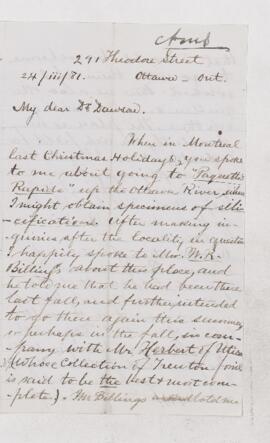 291 Theodore Street
24/iii/81. Ottawa – Ont.
My dear Dr Dawson.
When in Montreal
last Christmas Holidays, you spoke
to me about going to "Paquette's
Rapids" up the Ottawa River, where
I might obtain specimens of sili-
-cification. After making in-
quiries after the locality in question
I happily spoke to Mr. W. R.
Billings about this place, and
he told me that he had been there
last fall, and further, intended
to go there again this summer
or perhaps in the fall, in com-
pany with Mr Herbert of Utica
(whose Collection of Trenton
is said to be the best & most com-
plete). Mr Billings told me